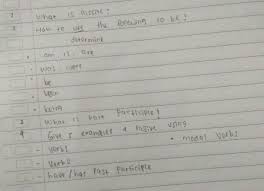 1 What is passive?
2 How to use the following to be?
determine
- am is are
- was were
- be
- been
- being
3 What is Past Participle?
4 Give 5 examples a passive using
- Verb1 • modal verbs
- Verb2
- have/has Past Participle